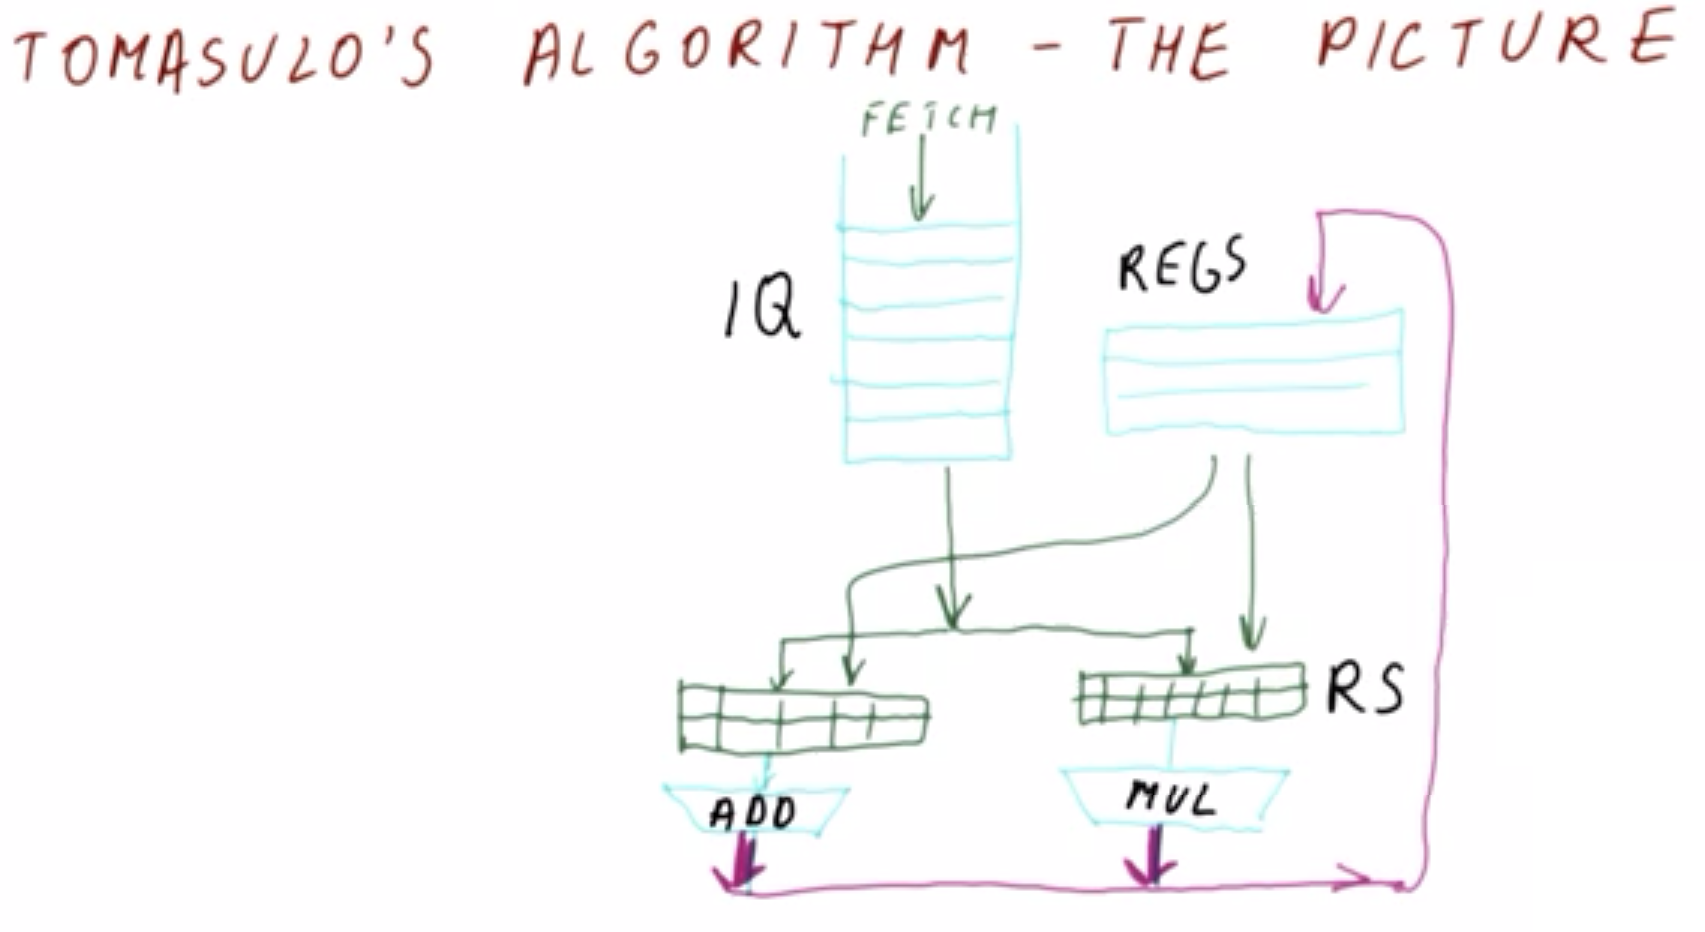 TOMASULO'S ALGORITHM - THE PICTURE
FETCH
IQ
REGS
RS
ADD
MUL